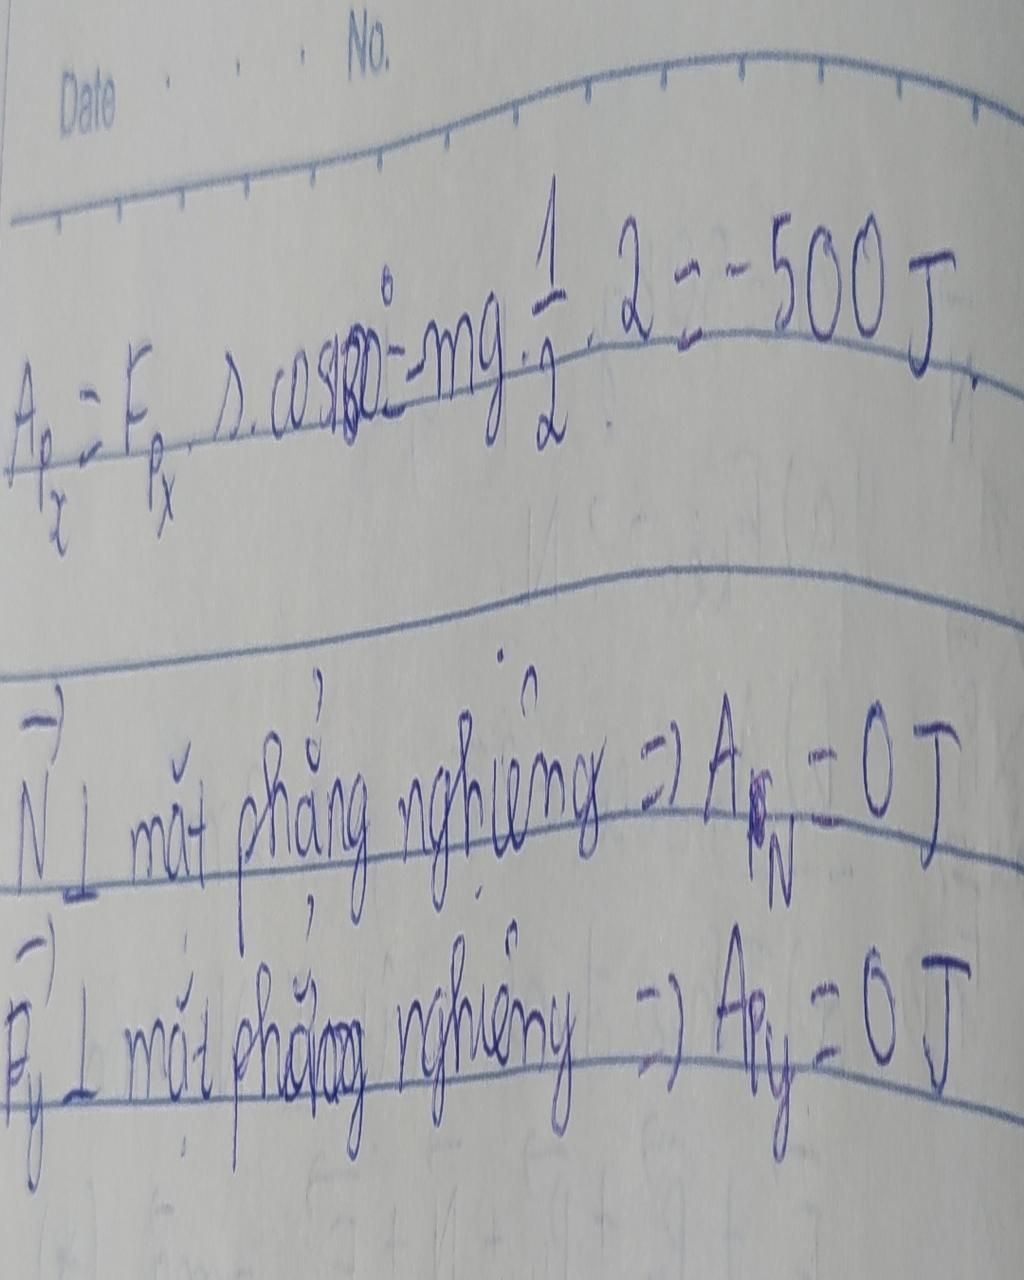 Date . . . No.
A_{P_x} = F_{P_x} . s . cos180° = -mg . \frac{1}{2} . 2 = -500 J
\vec{N} ⊥ mặt phẳng nghiêng => A_N = 0 J
\vec{P_y} ⊥ mặt phẳng nghiêng => A_{P_y} = 0 J